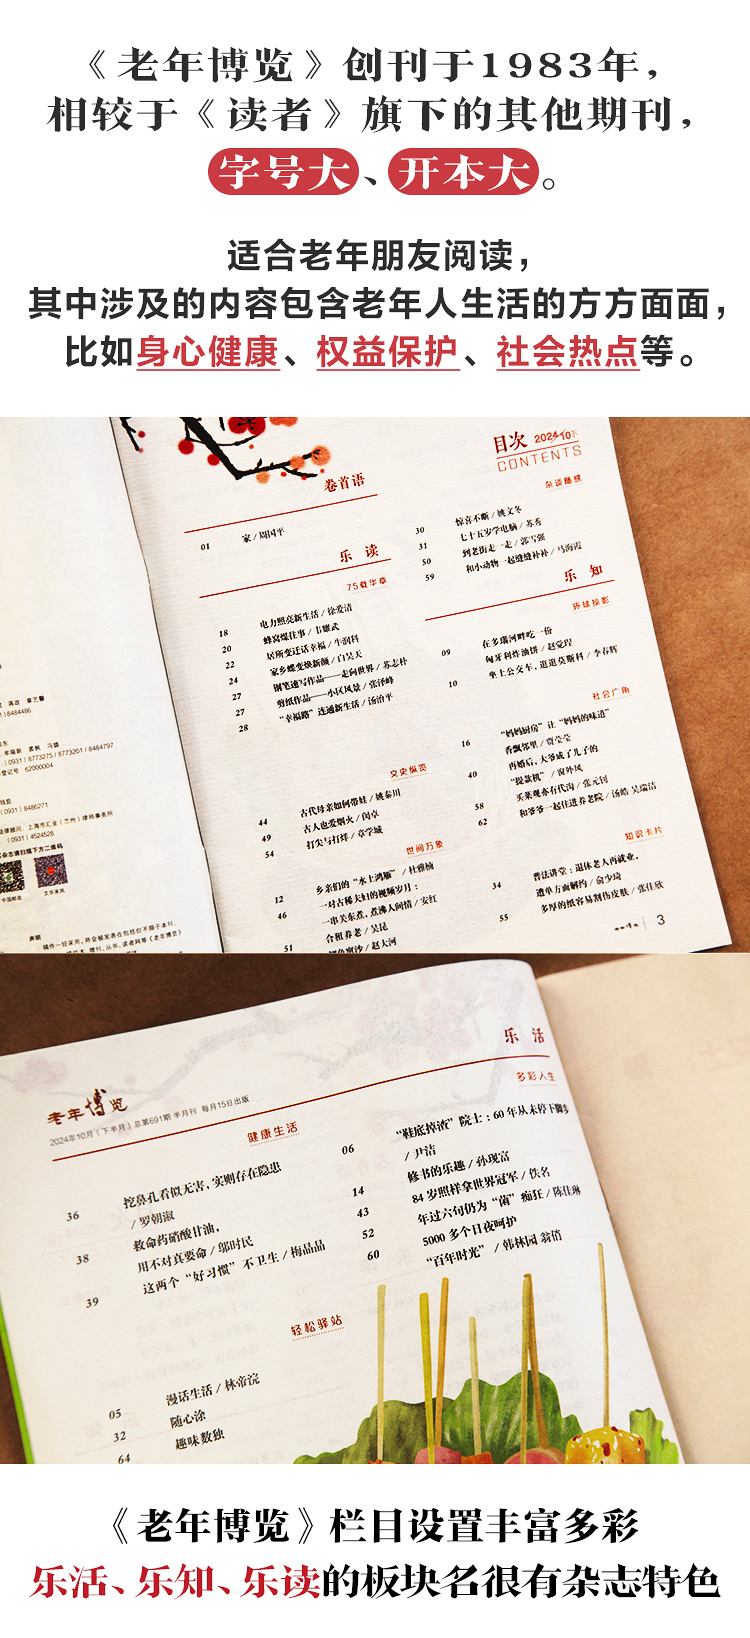 《老年博览》创刊于1983年，
相较于《读者》旗下的其他期刊，
字号大、开本大。
适合老年朋友阅读，
其中涉及的内容包含老年人生活的方方面面，
比如身心健康、权益保护、社会热点等。
蒋政 章艺馨
)8484486
车瑞新 袁枫 冯璐
(0931) 8773275 / 8773201 / 8484797
登记号 62000004
(0931) 8486271
律顾问：上海市汇业（兰州）律师事务所
(0931) 4524528
杂志请扫描下方二维码
中国邮政 文华来风
声明
稿件一经采用，将会被发表在包括但不限于本刊、
增刊、丛书、读者网等《老年博览》
卷首语
01 家 / 周国平
乐 读
75载华章
18 电力照亮新生活 / 徐爱清
20 蜂窝煤往事 / 韦耀武
22 居所变迁话幸福 / 牛润科
24 家乡蝶变焕新颜 / 白昊天
27 钢笔速写作品——走向世界 / 苏志朴
27 剪纸作品——小区风景 / 张泽峰
28 “幸福路”连通新生活 / 汤治平
文史纵览
44 古代母亲如何带娃 / 姚秦川
49 古人也爱烟火 / 闵卓
54 打尖与打烊 / 章学城
世间万象
12 乡亲们的“水上鸿雁” / 杜雅楠
46 一对古稀夫妇的视频岁月：
一串关东煮，煮沸人间情 / 安红
51 合租养老 / 吴昆
赵大河
目次 2024·10下
CONTENTS
杂谈随感
30 惊喜不断 / 姚文冬
31 七十五岁学电脑 / 苏秀
50 到老街走一走 / 郭雪强
59 和小动物一起缝缝补补 / 马海霞
乐 知
环球掠影
09 在多瑙河畔吃一份
匈牙利炸油饼 / 赵觉珵
10 坐上公交车，逛逛莫斯科 / 李春辉
社会广角
16 “妈妈厨房”让“妈妈的味道”
香飘邻里 / 贾莹莹
40 再婚后，大爷成了儿子的
“提款机” / 窗外风
58 买菜观亦有代沟 / 张元钊
62 和爷爷一起住进养老院 / 汤皓 吴瑞洁
知识卡片
34 普法讲堂：退休老人再就业，
遭单方面解约 / 俞少琦
55 多厚的纸容易割伤皮肤 / 张佳欣
3
老年博览
2024年10月（下半月）总第691期 半月刊 每月15日出版
健康生活
36 挖鼻孔看似无害，实则存在隐患
/ 罗朝淑
38 救命药硝酸甘油，
用不对真要命 / 邬时民
39 这两个“好习惯”不卫生 / 梅晶晶
轻松驿站
05 漫话生活 / 林帝浣
32 随心涂
64 趣味数独
乐 活
多彩人生
06 “鞋底掉渣”院士：60年从未停下脚步
/ 尹洁
14 修书的乐趣 / 孙现富
43 84岁照样拿世界冠军 / 佚名
52 年过六旬仍为“菌”痴狂 / 陈佳琳
60 5000多个日夜呵护
“百年时光” / 韩林园 翁俏
《老年博览》栏目设置丰富多彩
乐活、乐知、乐读的板块名很有杂志特色